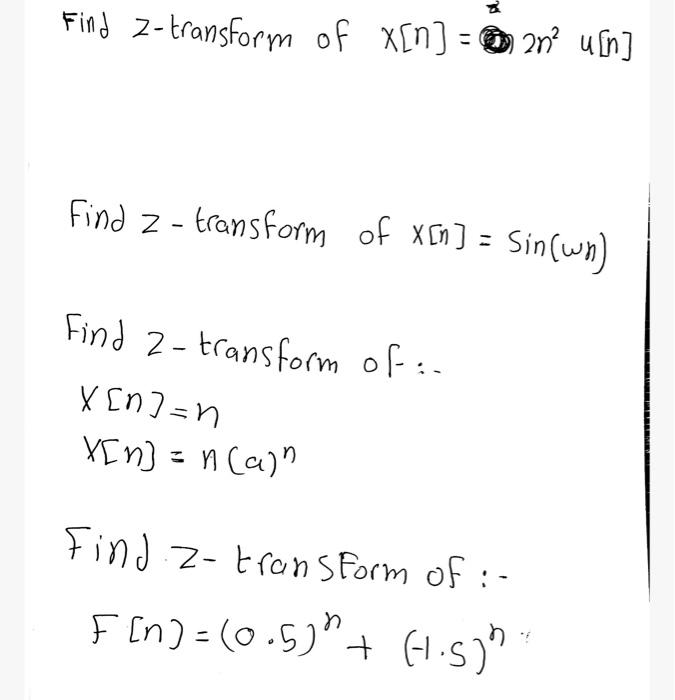 Find z-transform of x[n] = 2n² u[n]
Find z - transform of x[n] = Sin(ωn)
Find z - transform of :-
X[n] = n
X[n] = n(a)ⁿ
Find z- transform of :-
F[n] = (0.5)ⁿ + (-1.5)ⁿ